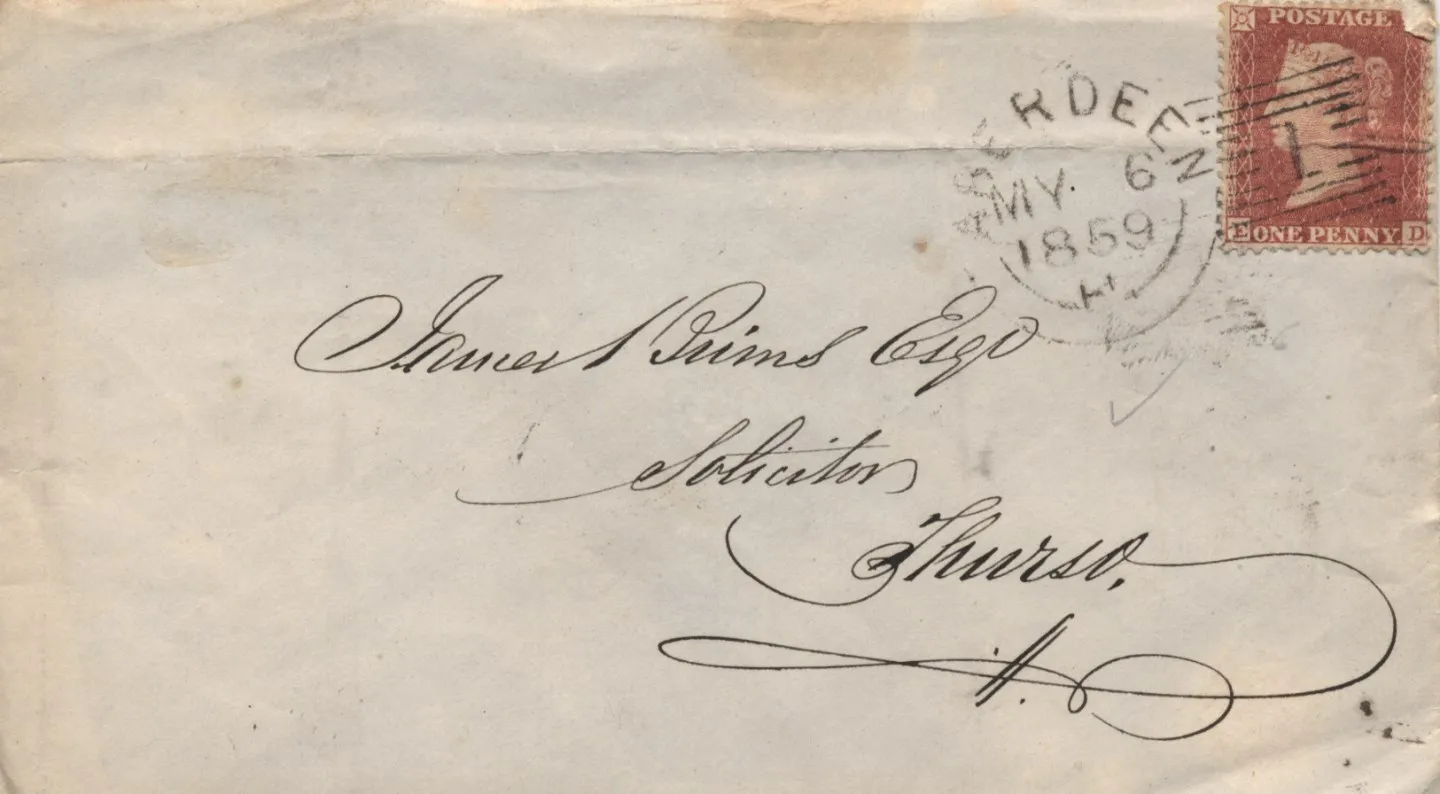 POSTAGE
ABERDEEN
MY 6
1859
H
1
E ONE PENNY D
James Brims Esqr
Solicitor
Thurso.